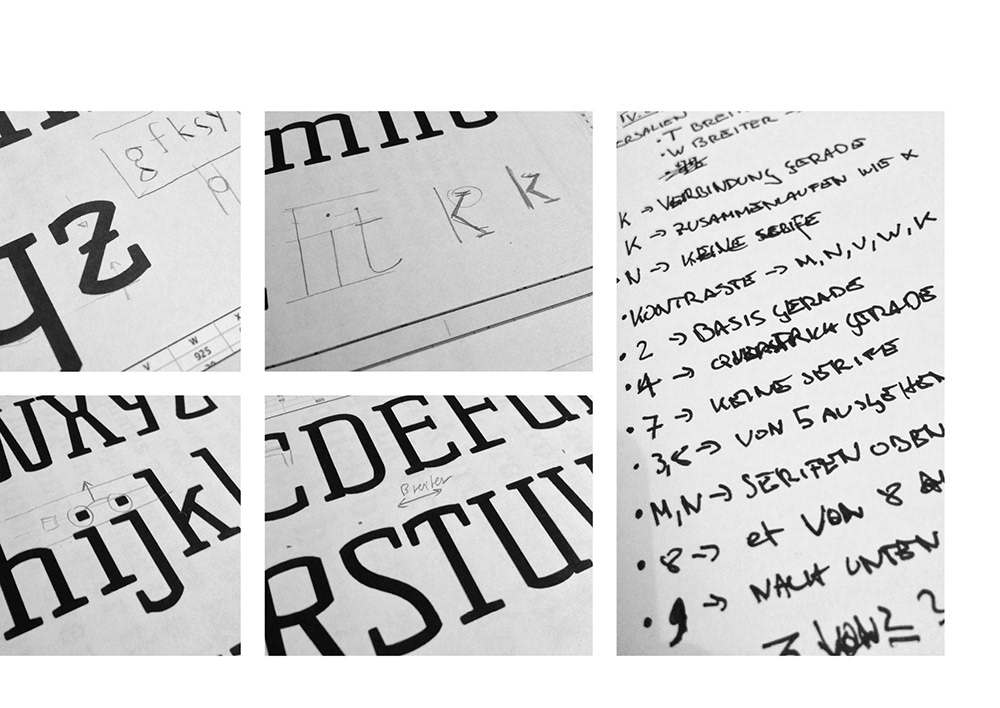 g f k s y
g
y z
V W X
925
m n o
fit k k
W X Y Z
h i j k l
C D E F G
Breiter
R S T U
VERSALIEN
· T BREITER
· W BREITER →
K → VERBINDUNG GERADE
K → ZUSAMMENLAUFEN WIE X
· N → KEINE SERIFE
· KONTRASTE → M, N, V, W, K
· 2 → BASIS GERADE
· 4 → QUERSTRICH GERADE
· 7 → KEINE SERIFE
· 3, → VON 5 AUSGEHEN
· M, N → SERIFEN OBEN
· 8 → et VON 8
· 9 → NACH UNTEN
VON 2 ?